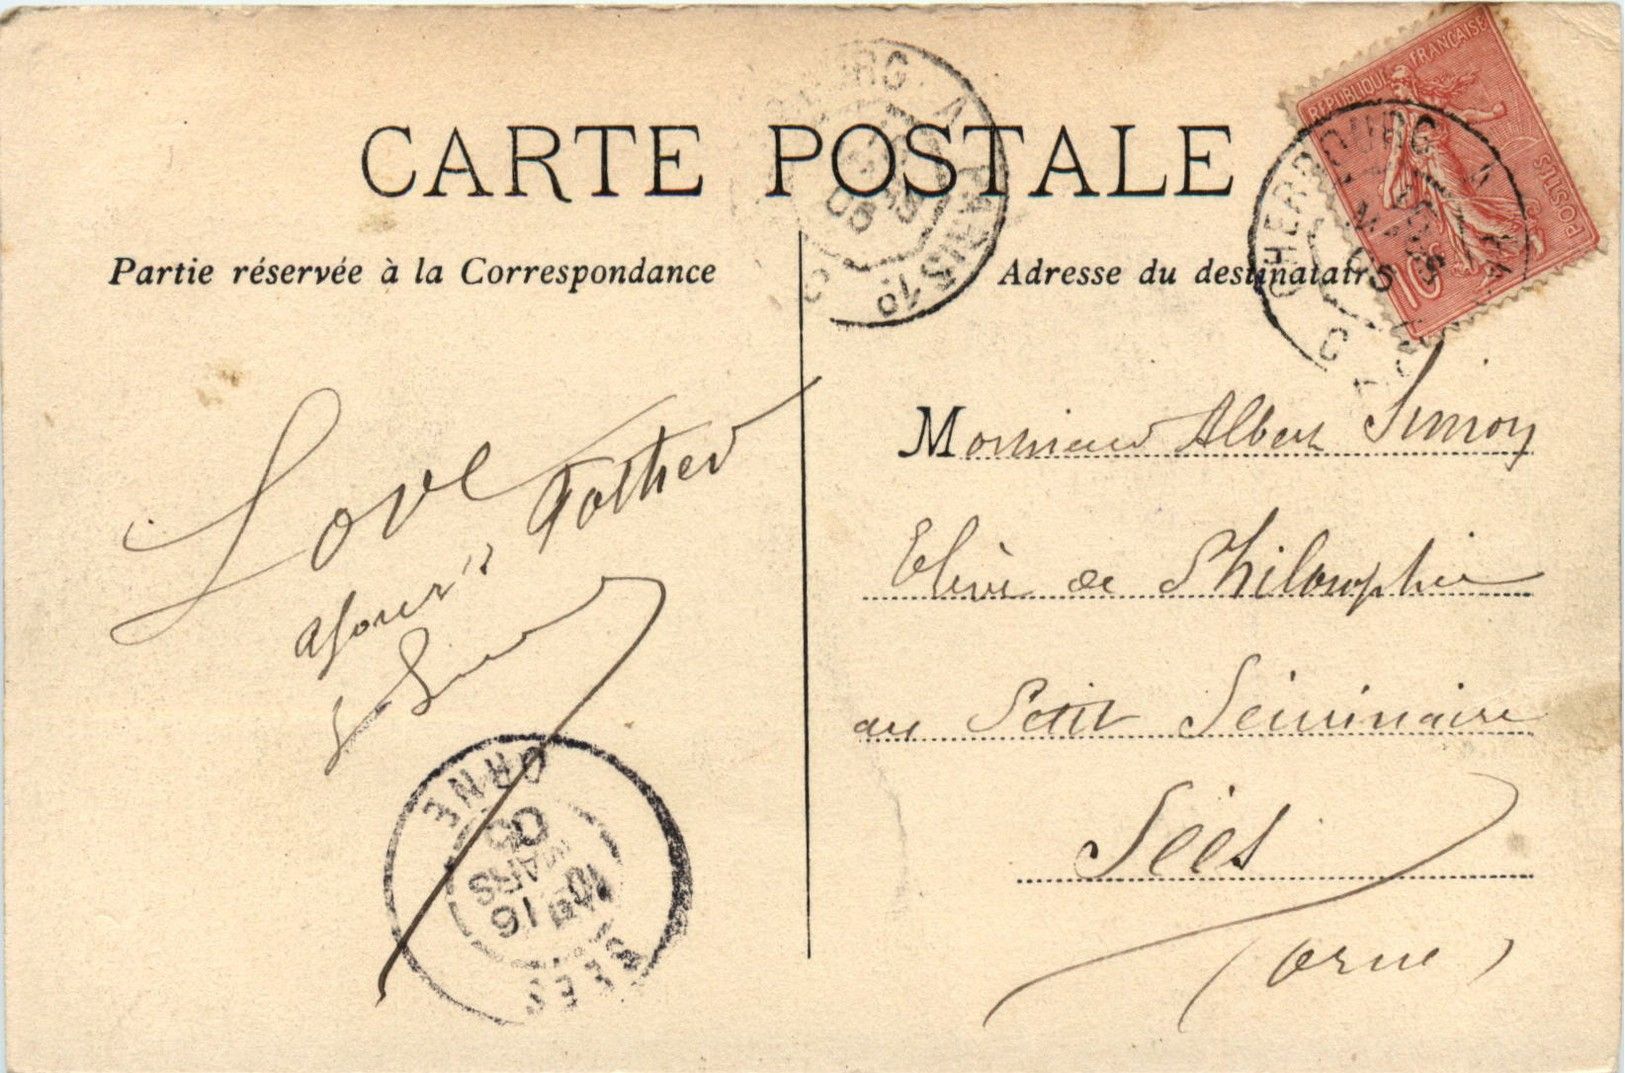 CARTE POSTALE
Partie réservée à la Correspondance
Adresse du destinataire
REPUBLIQUE FRANÇAISE
POSTES
10
CHERBOURG A PARIS
MARS
05
CHERBOURG A PARIS 1º
Love Father
Monsieur Albert Simon
Elève de Philosophie
au Petit Séminaire
Séés
(Orne)
SEES
16
MARS
05
ORNE